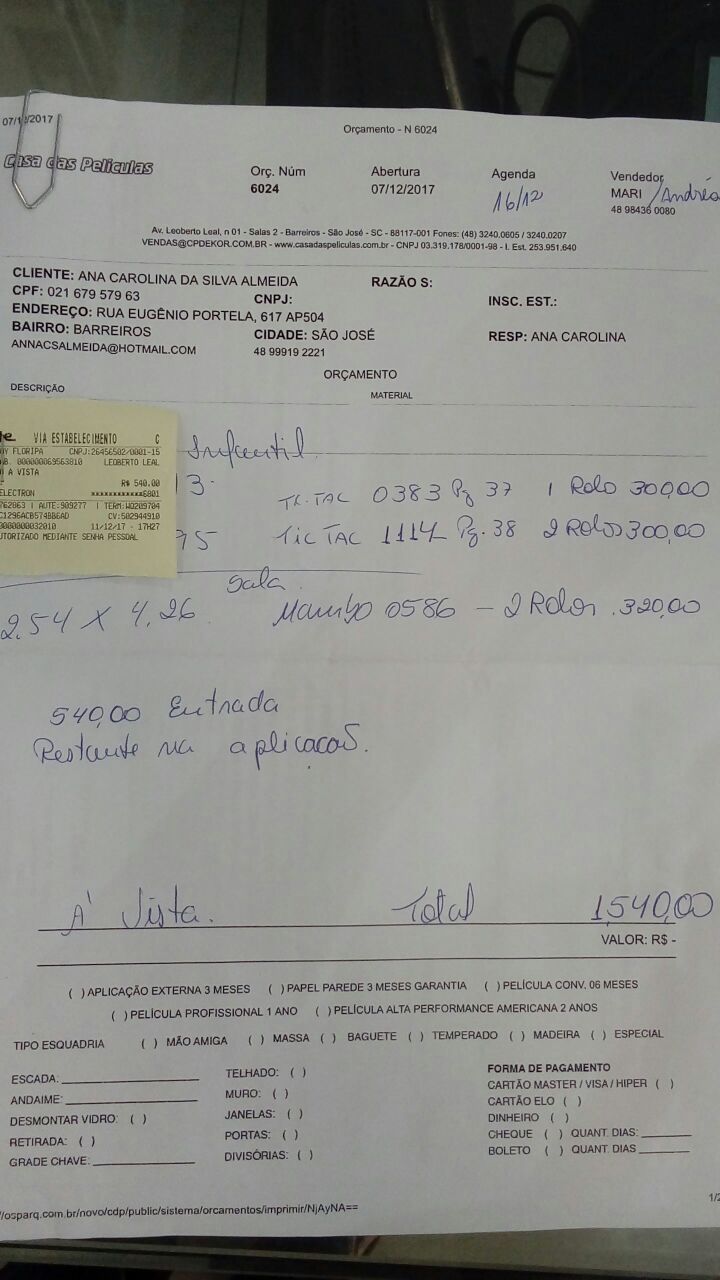 07/12/2017
Orçamento - N 6024
Casa das Películas
Orç. Núm Abertura Agenda Vendedor
6024 07/12/2017 16/12 MARI /Andréa
48 98436 0080
Av. Leoberto Leal, n 01 - Salas 2 - Barreiros - São José - SC - 88117-001 Fones: (48) 3240.0605 / 3240.0207
VENDAS@CPDEKOR.COM.BR - www.casadaspeliculas.com.br - CNPJ 03.319.178/0001-98 - I. Est. 253.951.640
CLIENTE: ANA CAROLINA DA SILVA ALMEIDA RAZÃO S:
CPF: 021 679 579 63 CNPJ: INSC. EST.:
ENDEREÇO: RUA EUGÊNIO PORTELA, 617 AP504
BAIRRO: BARREIROS CIDADE: SÃO JOSÉ RESP: ANA CAROLINA
ANNACSALMEIDA@HOTMAIL.COM 48 99919 2221
ORÇAMENTO
DESCRIÇÃO MATERIAL
VIA ESTABELECIMENTO C
FLORIPA CNPJ:26456502/0001-15
000000069563810 LEOBERTO LEAL
A VISTA
R$ 540.00
ELECTRON ************6801
762863 | AUTE:909277 | TERM:WD209784
C1296ACB574BB6AD CV:502944910
0000000032010 11/12/17 - 17H27
UTORIZADO MEDIANTE SENHA PESSOAL
Infantil
13. TIC-TAC 0383 Pg 37 1 Rolo 300,00
95 Tic TAC 1114 Pg. 38 2 Rolos 300,00
Sala
2,54 X 4,26 Mambo 0586 - 2 Rolos .320,00
540,00 Entrada
Restante na aplicacaõ.
A' Vista. Total 1.540,00
VALOR: R$ -
( ) APLICAÇÃO EXTERNA 3 MESES ( ) PAPEL PAREDE 3 MESES GARANTIA ( ) PELÍCULA CONV. 06 MESES
( ) PELÍCULA PROFISSIONAL 1 ANO ( ) PELÍCULA ALTA PERFORMANCE AMERICANA 2 ANOS
TIPO ESQUADRIA ( ) MÃO AMIGA ( ) MASSA ( ) BAGUETE ( ) TEMPERADO ( ) MADEIRA ( ) ESPECIAL
ESCADA: TELHADO: ( ) FORMA DE PAGAMENTO
ANDAIME: MURO: ( ) CARTÃO MASTER / VISA / HIPER ( )
DESMONTAR VIDRO: ( ) JANELAS: ( ) CARTÃO ELO ( )
RETIRADA: ( ) PORTAS: ( ) DINHEIRO ( )
GRADE CHAVE: DIVISÓRIAS: ( ) CHEQUE ( ) QUANT. DIAS:
BOLETO ( ) QUANT. DIAS
//osparq.com.br/novo/cdp/public/sistema/orcamentos/imprimir/NjAyNA== 1/2